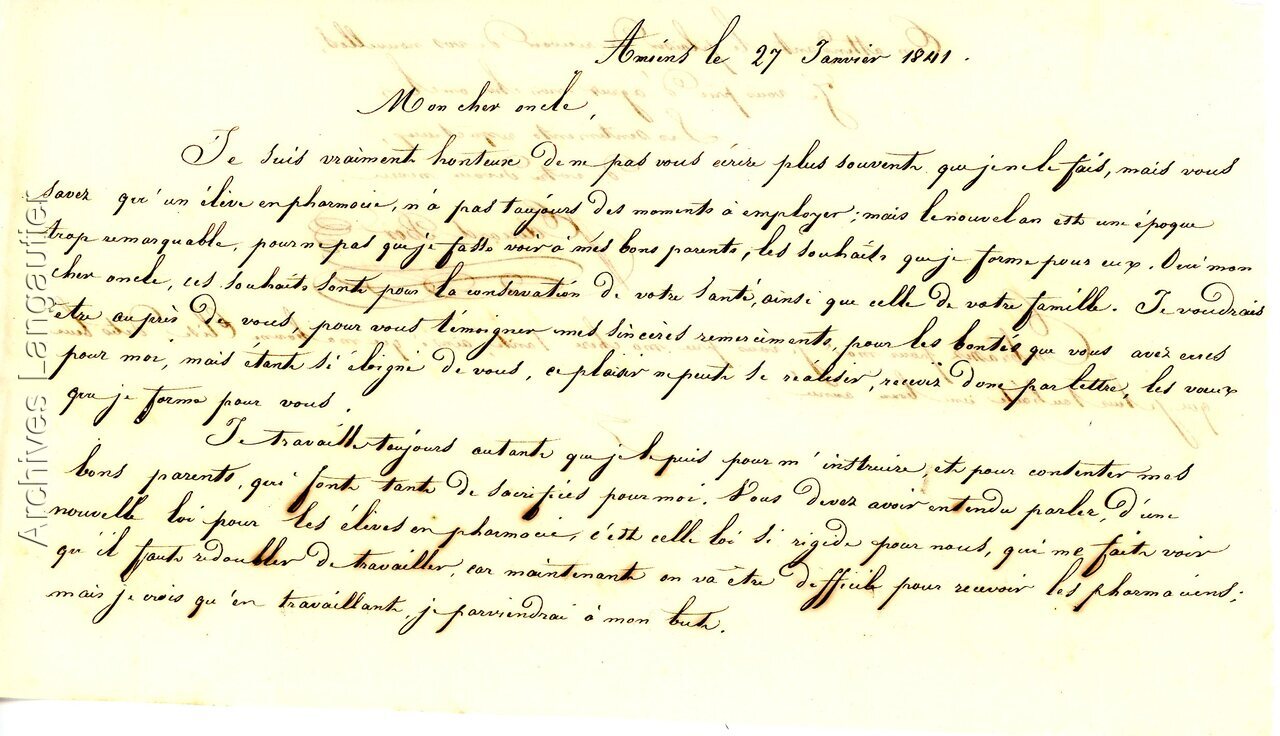 Amiens le 27 Janvier 1841.
Mon cher oncle,
Je suis vraiment honteux de ne pas vous écrire plus souvent que je ne le fais, mais vous
savez qu'un élève en pharmacie, n'a pas toujours des moments à employer; mais le nouvel an est une époque
trop remarquable, pour ne pas que je fasse voir à mes bons parents, les souhaits que je forme pour eux. Oui mon
cher oncle, ces souhaits sont pour la conservation de votre santé, ainsi que celle de votre famille. Je voudrais
être auprès de vous, pour vous témoigner mes sincères remerciments, pour les bontés que vous avez eues
pour moi, mais étant si éloigné de vous, ce plaisir ne peut se réaliser, recevez donc par lettre, les vœux
que je forme pour vous.
Je travaille toujours autant que je le puis pour m'instruire, et pour contenter mes
bons parents, qui font tant de sacrifices pour moi. Vous devez avoir entendu parler, d'une
nouvelle loi pour les élèves en pharmacie, c'est celle loi si rigide pour nous, qui me fait voir
qu'il faut redoubler de travailler, car maintenant on va être difficile pour recevoir les pharmaciens;
mais je crois qu'en travaillant, je parviendrai à mon but.
Archives Langautier